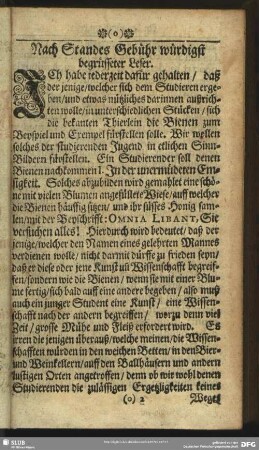 (o)
Nach Standes Gebühr würdigst
begrüsseter Leser.
ICh habe iederzeit dafür gehalten / daß
der jenige / welcher sich dem Studieren erge-
ben / und etwas nützliches darinnen außrich-
ten wolle / in unterschiedlichen Stücken / sich
die bekanten Thierlein die Bienen zum
Beyspiel und Exempel fürstellen solle. Wir wellen
solches der studierenden Jugend in etlichen Sinn-
Bildern fürstellen. Ein Studierender soll denen
Bienen nachkommen 1. In der unermüdeten Em-
sigkeit. Solches abzubilden wird gemahlet eine schö-
ne mit vielen Blumen angefüllete Wiese / auff welcher
die Bienen häuffig sitzen / und ihr süsses Honig sam-
len / mit der Beyschrifft: OMNIA LIBANT, Sie
versuchen alles! Hierdurch wird bedeutet / daß der
jenige / welcher den Namen eines gelehrten Mannes
verdienen wolle / nicht darmit dürffe zu frieden seyn /
daß er diese oder jene Kunst uñ Wissenschafft begreif-
fen / sondern wie die Bienen / wenn sie mit einer Blu-
me fertig / sich bald auff eine andre begeben / also muß
auch ein junger Student eine Kunst / eine Wissen-
schafft nach der andern begreiffen / worzu denn viel
Zeit / grosse Mühe und Fleiß erfordert wird. Es
irren die jenigen überauß / welche meinen / die Wissen-
schafften würden in den weichen Betten / in den Bier-
und Weinkellern / auff den Ballhäusern und andern
lustigen Orten angetroffen / denn ob wir wohl denen
Studierenden die zulässigen Ergetzligkeiten keines
(o) 2 Weges
SLUB
DFG